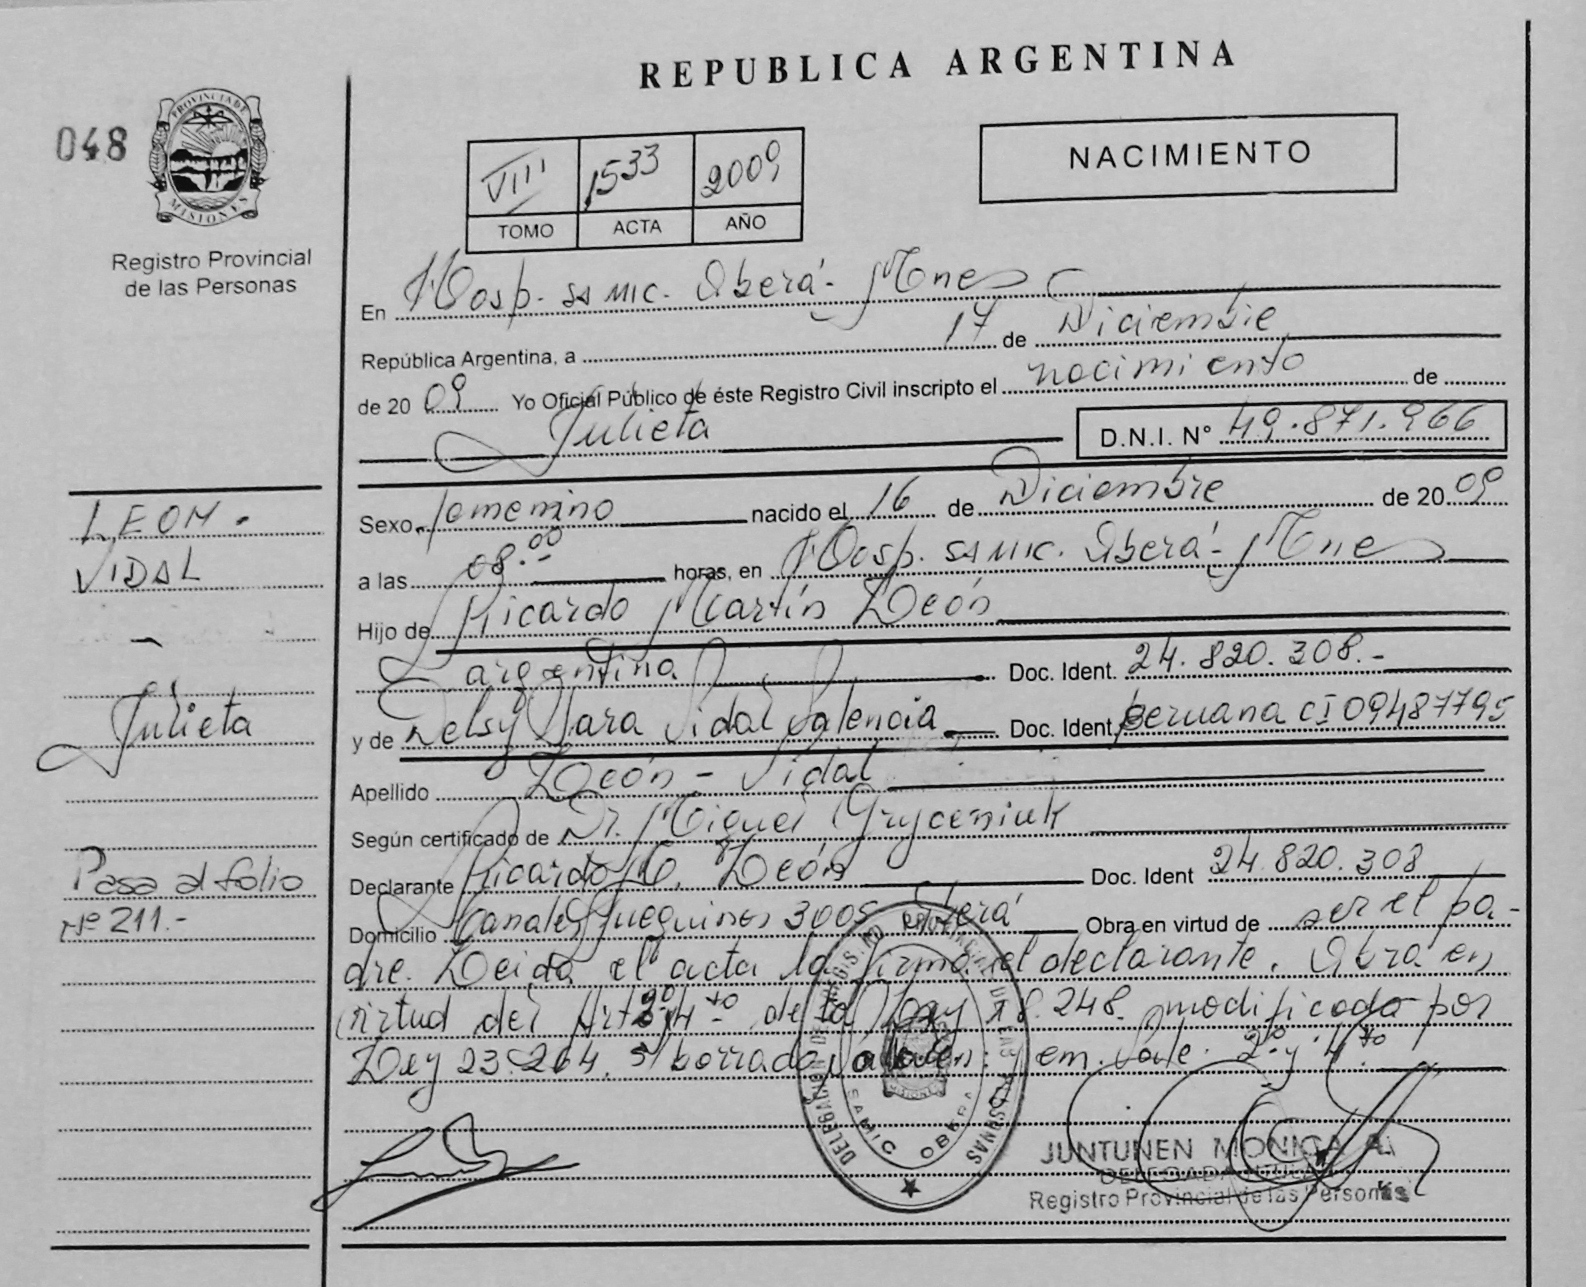 REPUBLICA ARGENTINA
048
PROVINCIA DE
MISIONES
Registro Provincial
de las Personas
VIII 1533 2009
TOMO ACTA AÑO
NACIMIENTO
En Hosp. SAMIC. Oberá - Mnes
República Argentina, a 17 de Diciembre
de 2009 Yo Oficial Público de éste Registro Civil inscripto el nacimiento de
Julieta D.N.I. Nº 49.871.966
Sexo femenino nacido el 16 de Diciembre de 2009
a las 08.00 horas, en Hosp. SAMIC. Oberá - Mnes
Hijo de Ricardo Martín León
argentina Doc. Ident. 24.820.308.-
y de Nelsy Sara Vidal Valencia Doc. Ident. peruana CI 09487795
Apellido León - Vidal
Según certificado de Dr. Miguel Gryceniuk
Declarante Ricardo M. León Doc. Ident 24.820.308
Domicilio Canales Fueguinos 3005 Oberá Obra en virtud de ser el pa-
dre. Leida el acta la firma el declarante. Obra en
virtud del Art 2º y 4to de la Ley 18.248 modificada por
Ley 23.264. s/ borrado vale: y em. Vale: 2º y 4to
LEON -
VIDAL
Julieta
Pasa al folio
Nº 211.-
DELEGACION DEL REG. PROVINCIAL DE LAS PERSONAS
SAMIC OBERA
MISIONES
JUNTUNEN MONICA A.
DELEGADA TITULAR
Registro Provincial de las Personas